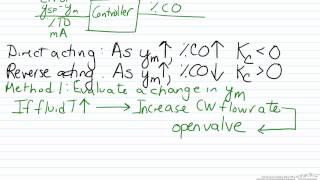 error
ysp-ym
%TO
mA
Controller
%CO
Direct acting: As ym↑, %CO↑ Kc<0
Reverse acting: As ym↑, %CO↓ Kc>0
Method 1: Evaluate a change in ym
If fluid T↑ → Increase CW flowrate
open valve ←